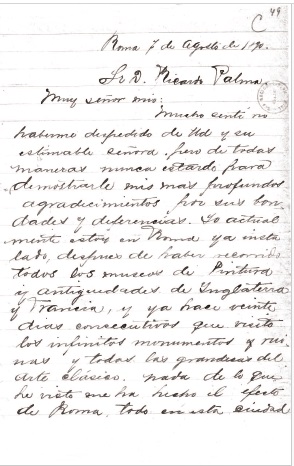 49
C
Roma 7 de Agosto de 190.
Sr D. Ricardo Palma.
Muy señor mio:
Mucho sentí no
haberme despedido de Ud y su
estimable señora, pero de todas
maneras nunca es tarde para
demostrarle mis mas profundos
agradecimientos por sus bon-
dades y diferencias. Yo actual
mente estoy en Roma ya insta
lado, despues de haber recorrido
todos los museos de Pintura
y antiguedades de Inglaterra
y Francia, y ya hace veinte
dias consecutivos que visito
los infinitos monumentos y rui
nas y todas las grandezas del
arte clásico. nada de lo que
he visto me ha hecho el efecto
de Roma, todo en esta ciudad